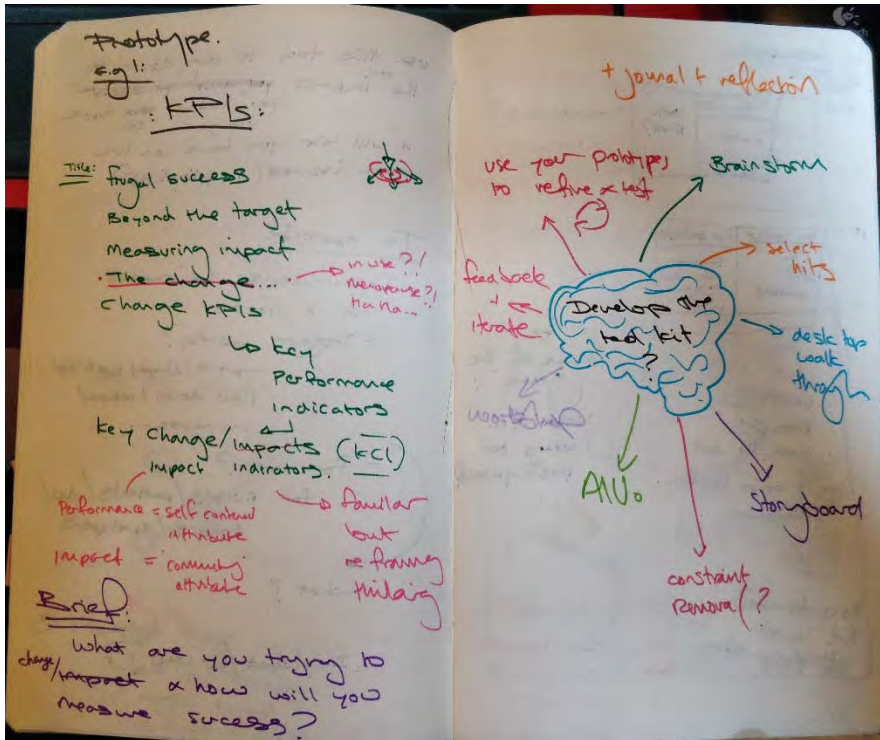 Prototype.
e.g 1:
: KPIs:
Title: frugal success
Beyond the target
Measuring impact
The change...
in use?!
menopause?!
Ha Ha...
Change KPIs
Key
Performance
Indicators
Key Change/Impacts (KCI)
impact indicators.
Performance = self centered
attribute
impact = community
attribute
familiar
but
re framing
thinking
Brief:
What are you trying to
change/impact & how will you
measure sucess?
+ journal + reflection
use your prototypes
to refine & test
Brainstorm
select
hits
feedback
+
iterate
Develop the
tool kit
?
desktop
walk
through
workshop
AIUo
Storyboard
constraint
removal?